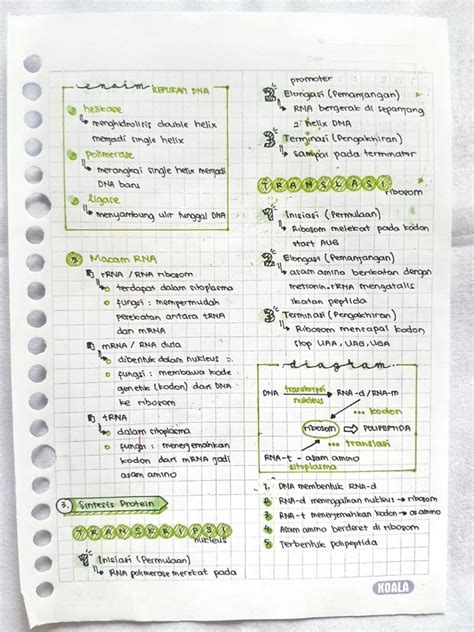 No
Date
enzim REPLIKASI DNA
helikase
↳ menghidrolisis double helix
menjadi single helix
polimerase
↳ merangkai single helix menjadi
DNA baru
ligase
↳ menyambung ulir tunggal DNA
Macam RNA
rRNA / RNA ribosom
terdapat dalam sitoplasma
fungsi : mempermudah
perekatan antara tRNA
dan mRNA
mRNA / RNA duta
dibentuk dalam nukleus
fungsi : membawa kode
genetik (kodon) dari DNA
ke ribosom
tRNA
dalam sitoplasma
fungsi : menerjemahkan
kodon dari mRNA jadi
asam amino
3. Sintesis Protein
TRANSKRIPSI
nukleus
1 Inisiasi (Permulaan)
↳ RNA polimerase merekat pada
promoter
2 Elongasi (Pemanjangan)
↳ RNA bergerak di sepanjang
2 helix DNA
3 Terminasi (Pengakhiran)
↳ sampai pada terminator
TRANSLASI
ribosom
1 Inisiasi (Permulaan)
↳ Ribosom melekat pada kodon
start AUG
2 Elongasi (Pemanjangan)
↳ asam amino berikatan dengan
metionin. rRNA mengatalis
ikatan peptida
3 Terminasi (Pengakhiran)
↳ Ribosom mencapai kodon
stop UAA, UAG, UGA
diagram
DNA transkripsi → RNA-d/RNA-m
nukleus
... kodon
ribosom ⇒ POLIPEPTIDA
... translasi
RNA-t - asam amino
sitoplasma
1. DNA membentuk RNA-d
2 RNA-d meninggalkan nukleus → ribosom
3 RNA-t menerjemahkan kodon → as.amino
4 Asam amino berderet di ribosom
5 Terbentuk polipeptida
KOALA